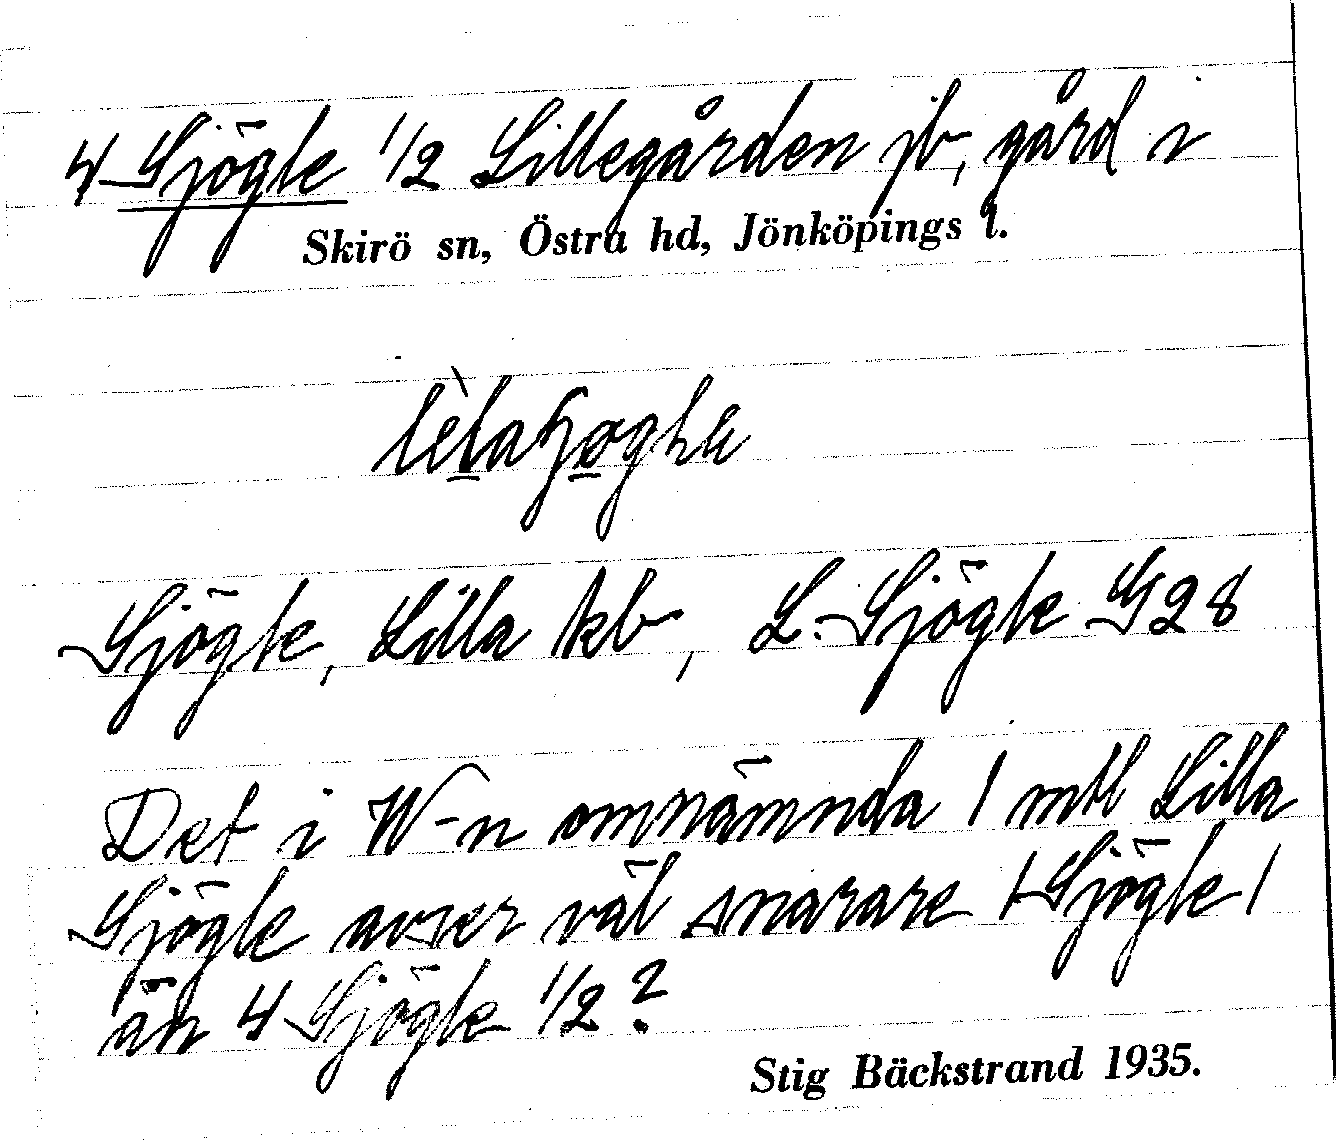 4 Sjögle 1/2 Lillegården jb, gård i
Skirö sn, Östra hd, Jönköpings l.
Sjögle, Lilla kb, L. Sjögle G28
Det i W-n omnämnda 1 mtl Lilla
Sjögle avser väl snarare 1 Sjögle 1
än 4 Sjögle 1/2?
Stig Bäckstrand 1935.